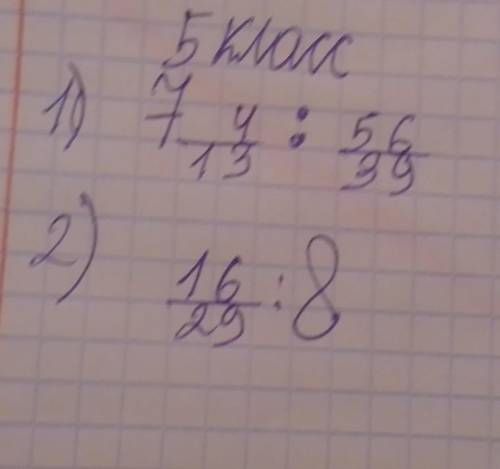 5 класс
1) 7 4/13 : 56/39
2) 16/29 : 8